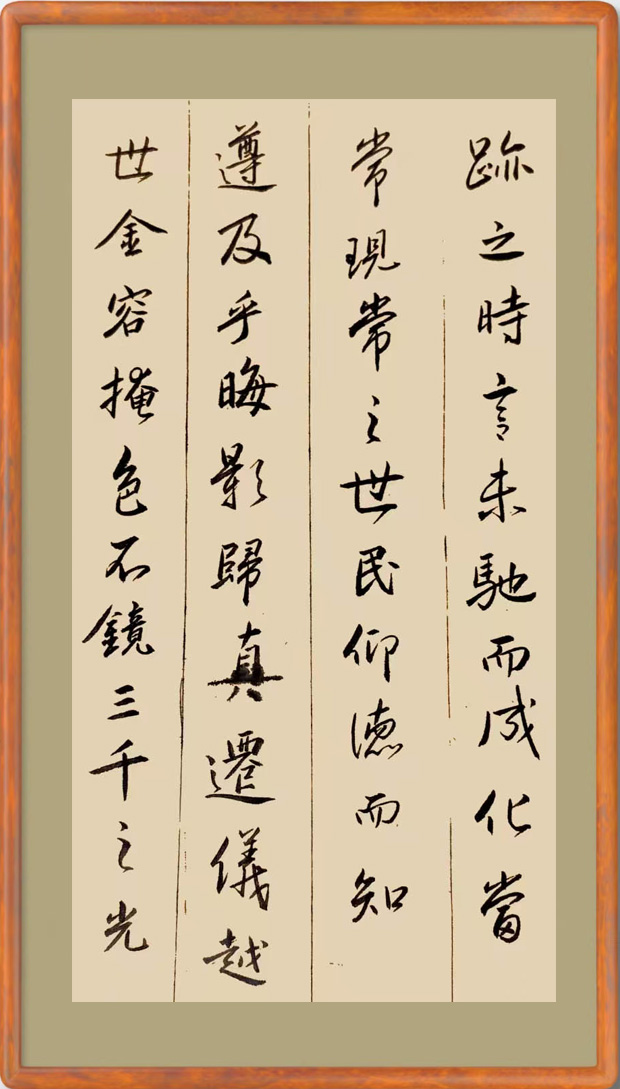 跡之時言未馳而成化當
常現常之世民仰德而知
遵及乎晦影歸真遷儀越
世金容掩色不鏡三千之光